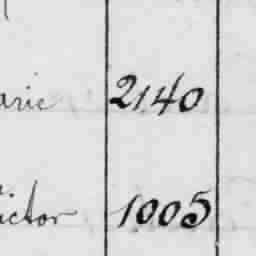 arie 2140
ictor 1005